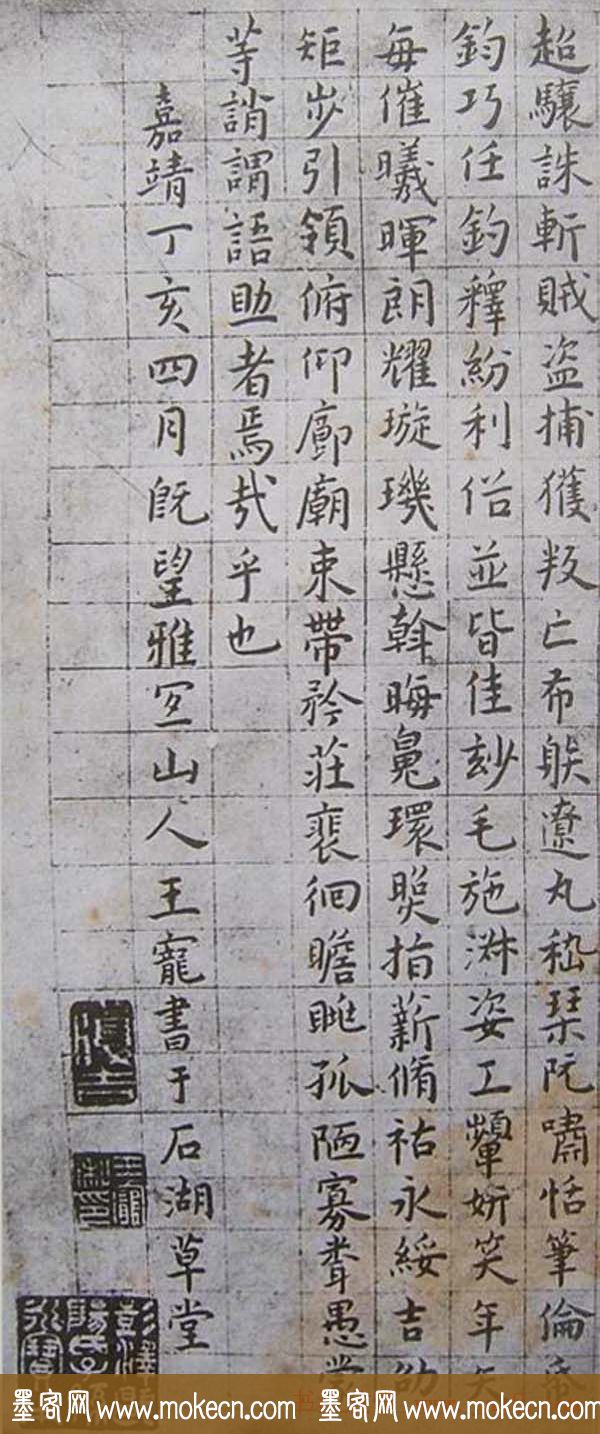 超驤誅斬賊盜捕獲叛亡布躲遼丸嵇琹阮嘯恬筆倫
鈞巧任釣釋紛利俗並皆佳玅毛施淑姿工顰妍笑年
每催曦暉朗耀璇璣懸斡晦魄環照指薪脩祜永綏吉劭
矩步引領俯仰廊廟束帶矜莊裴徊瞻眺孤陋寡聞愚蒙
等誚謂語助者焉哉乎也
嘉靖丁亥四月既望雅宜山人王寵書于石湖草堂
墨客网 www.mokecn.com 墨客网 www.mokecn.com